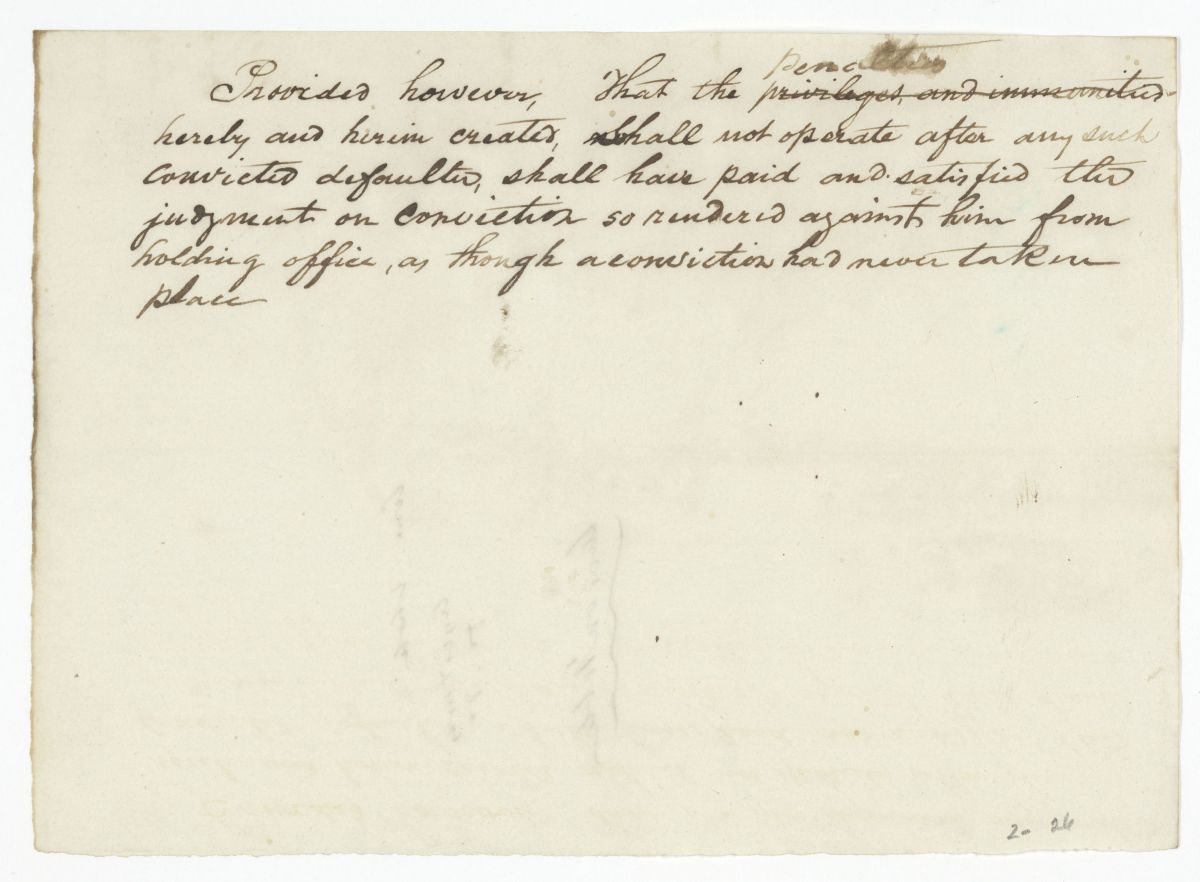 penalties
Provided however, That the privileges, and immunities
hereby and herein created, shall not operate after any such
convicted defaulter, shall have paid and satisfied the
judgment on conviction so rendered against him from
holding office, as though a conviction had never taken
place
2- 26